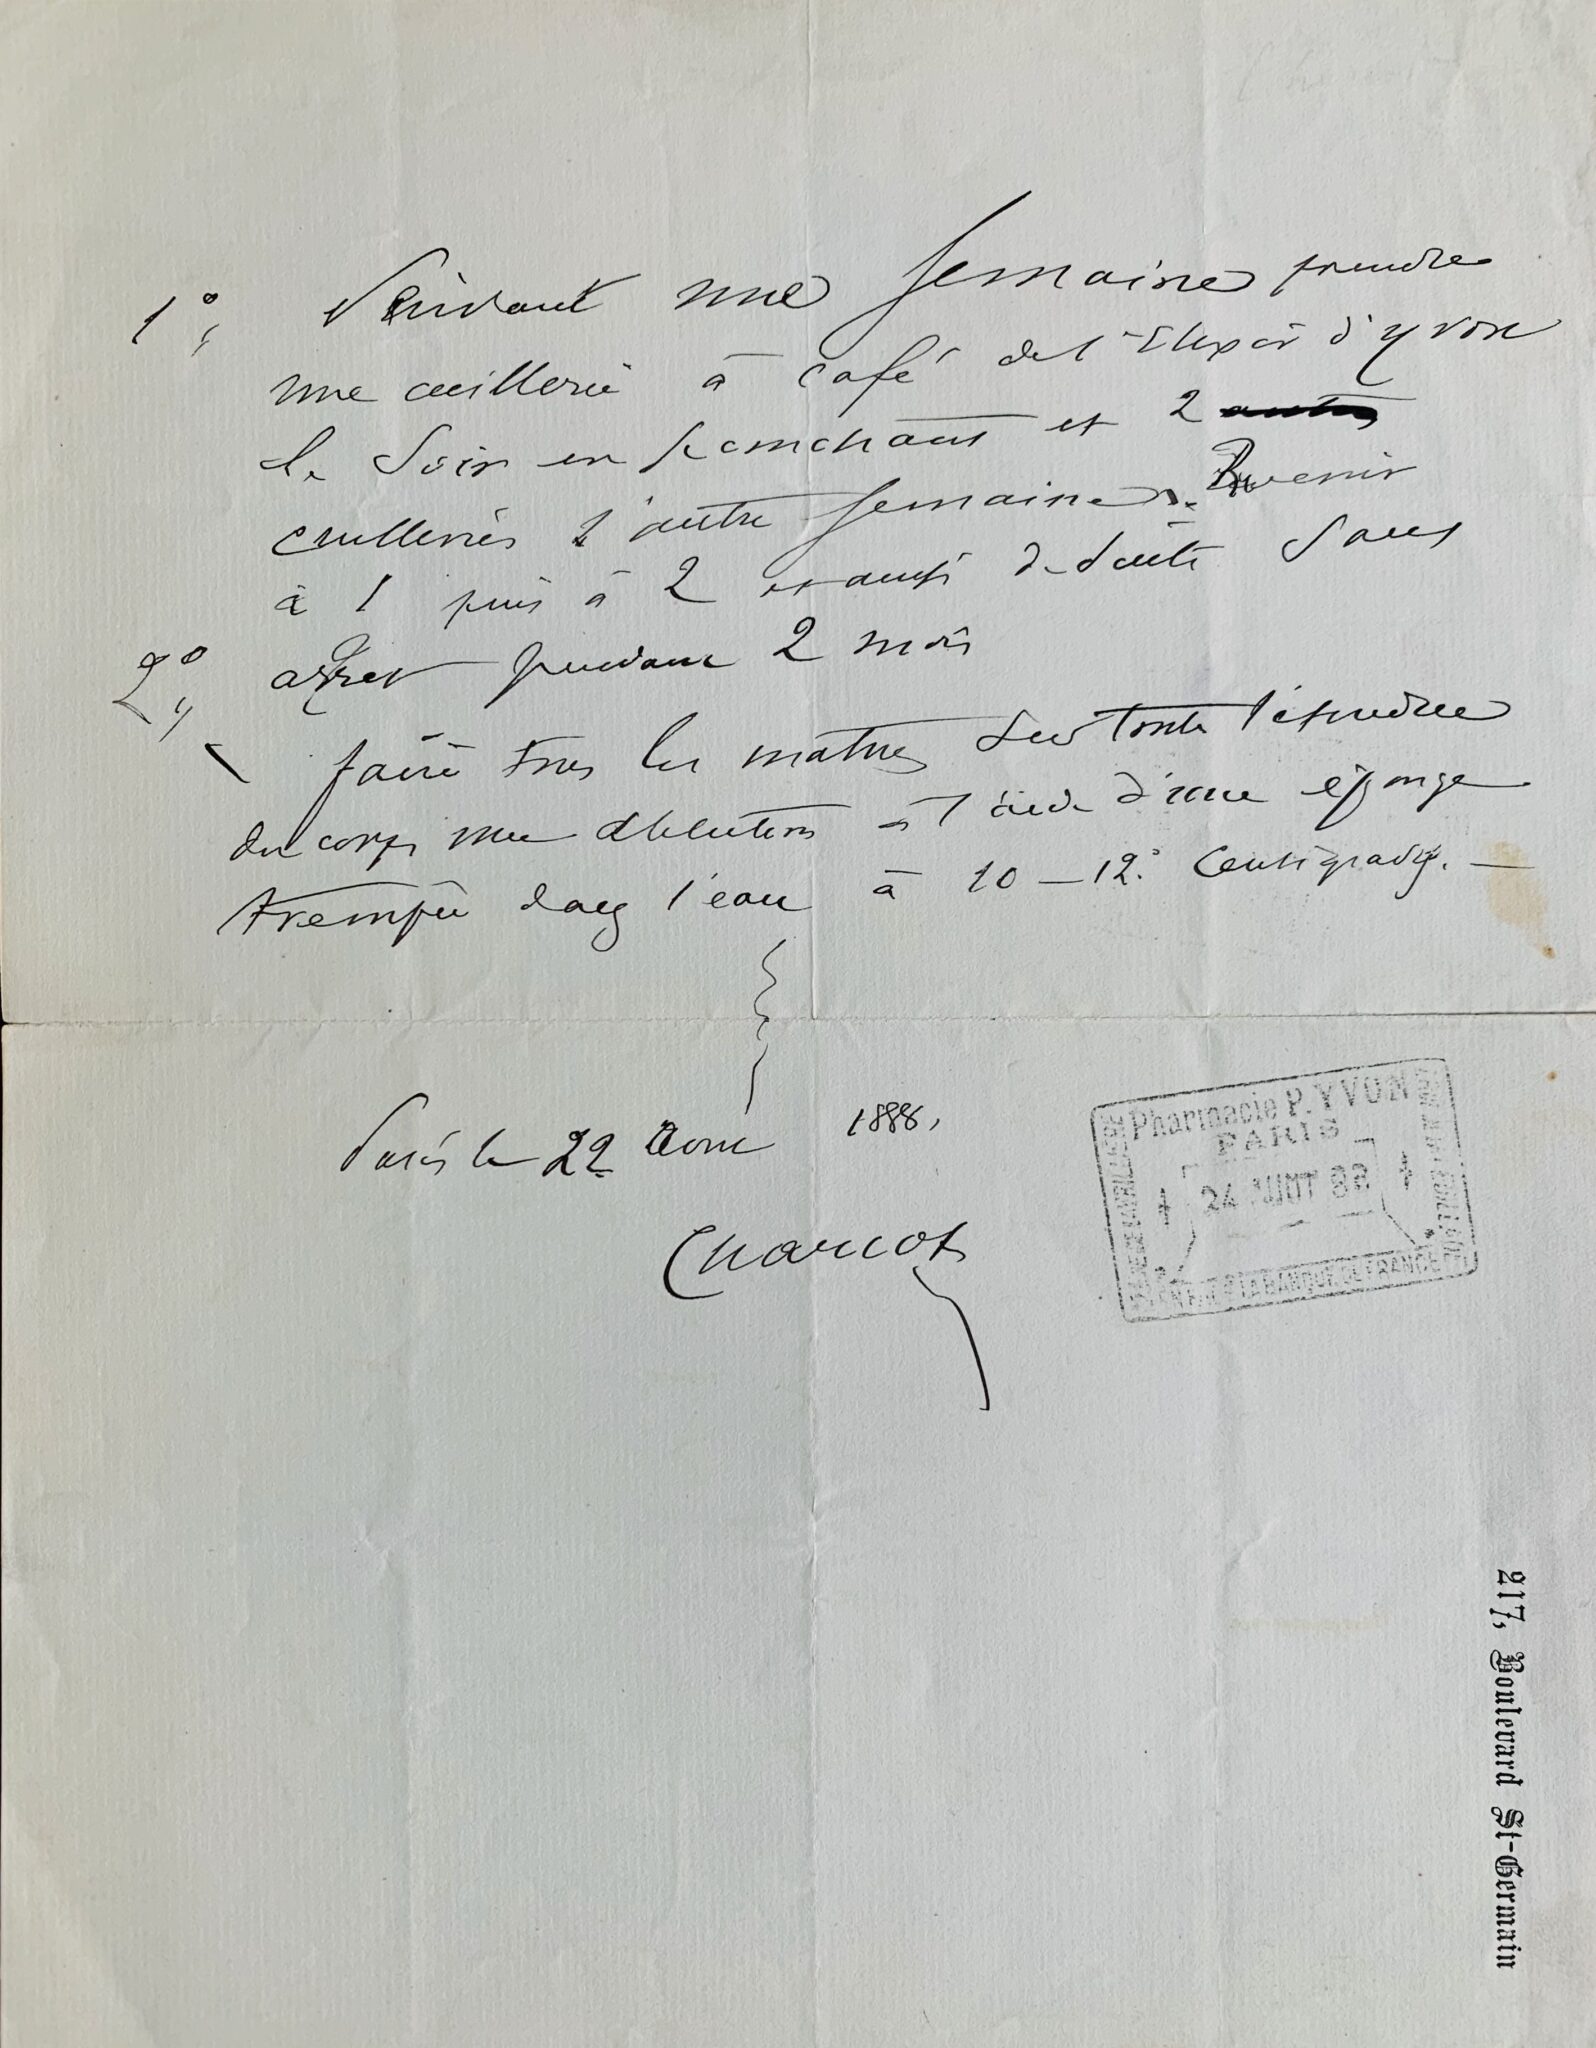 1°, Pendant une semaine prendre
une cuillerie à café de l'Elixir d'Yvon
le soir en se couchant et 2
cuilleries l'autre semaine. Revenir
à 1 puis à 2 et ainsi de suite sans
arret pendant 2 mois
2°, faire tous les matins sur toute l'étendue
du corps une ablution à l'aide d'une éponge
trempée dans l'eau à 10 – 12° Centigrades. —
Paris le 22 Aout 1888.
Charcot
Pharmacie P. YVON
PARIS
24 AOUT 88
LA BANQUE DE FRANCE
217, Boulevard St-Germain